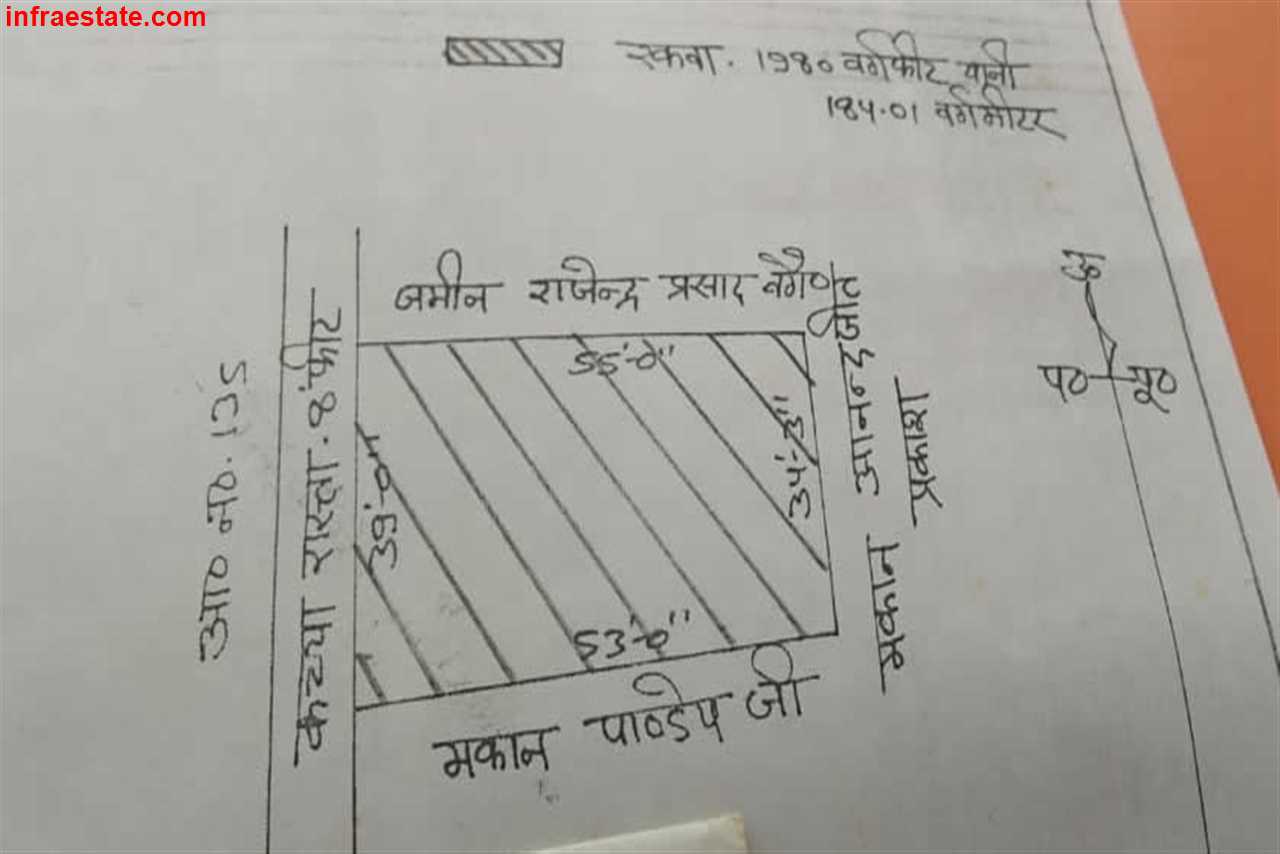 infraestate.com
रकवा. 1980 वर्गफीट यानी
184.01 वर्गमीटर
जमीन राजेन्द्र प्रसाद वगैरह
55'-0"
39'-0"
34'-3"
53'-0"
मकान पाण्डेय जी
मकान आनन्द जीत
प्रकाश
कच्चा रास्ता. 8 फीट
आ० न०. 135
उ०
प० पू०